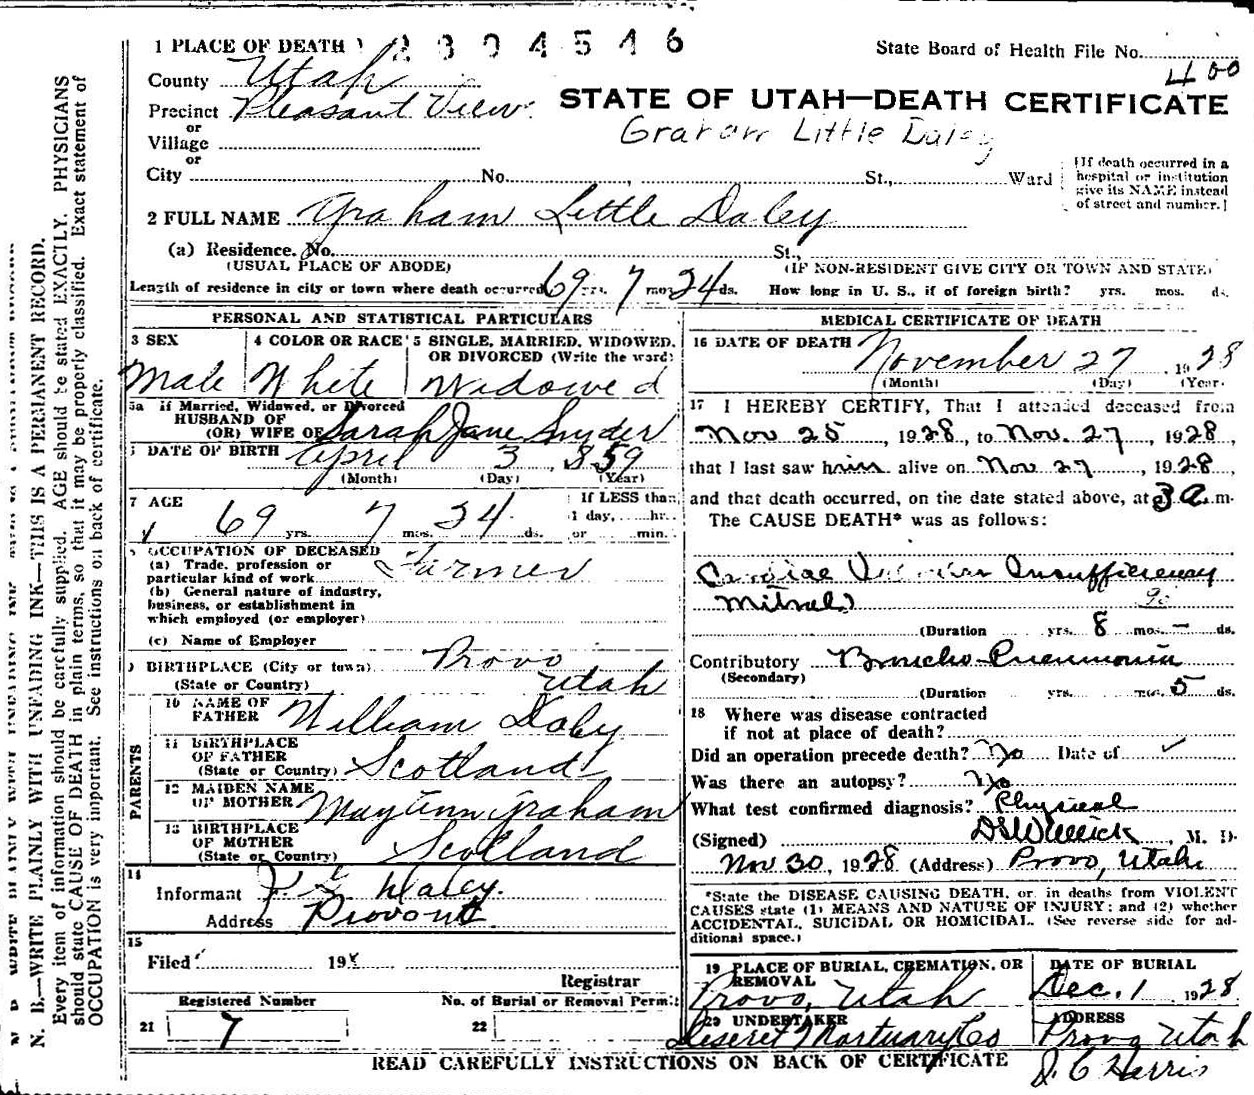 1 PLACE OF DEATH 2 8 0 4 5 4 6
State Board of Health File No. 400
County Utah
Precinct Pleasant View
STATE OF UTAH—DEATH CERTIFICATE
or
Village
Graham Little Daley
or
City No. St., Ward
[If death occurred in a
hospital or institution
give its NAME instead
of street and number.]
2 FULL NAME Graham Little Daley
(a) Residence. No. St.,
(USUAL PLACE OF ABODE) (IF NON-RESIDENT GIVE CITY OR TOWN AND STATE)
Length of residence in city or town where death occurred 69 yrs. 7 mos. 24 ds. How long in U. S., if of foreign birth? yrs. mos. ds.
PERSONAL AND STATISTICAL PARTICULARS
3 SEX
Male
4 COLOR OR RACE
White
5 SINGLE, MARRIED, WIDOWED,
OR DIVORCED (Write the word)
Widowed
5a if Married, Widowed, or Divorced
HUSBAND OF
(OR) WIFE OF Sarah Jane Snyder
DATE OF BIRTH April 3, 1859
(Month) (Day) (Year)
7 AGE
69 yrs. 7 mos. 24 ds.
If LESS than
1 day, hr.
or min.
OCCUPATION OF DECEASED
(a) Trade, profession or
particular kind of work Farmer
(b) General nature of industry,
business, or establishment in
which employed (or employer)
(c) Name of Employer
BIRTHPLACE (City or town) Provo
(State or Country) Utah
PARENTS
10 NAME OF
FATHER William Daley
11 BIRTHPLACE
OF FATHER
(State or Country) Scotland
12 MAIDEN NAME
OF MOTHER May Ann Graham
13 BIRTHPLACE
OF MOTHER
(State or Country) Scotland
14
Informant Daley.
Address Provo
15
Filed 19
Registrar
Registered Number No. of Burial or Removal Permit
21 7 22
MEDICAL CERTIFICATE OF DEATH
16 DATE OF DEATH November 27 1928
(Month) (Day) (Year)
17 I HEREBY CERTIFY, That I attended deceased from
Nov 25, 1928, to Nov. 27, 1928,
that I last saw him alive on Nov 27, 1928,
and that death occurred, on the date stated above, at 3 a. m.
The CAUSE DEATH* was as follows:
Cardiac Insufficiency
Mitral)
(Duration yrs. 8 mos. — ds.
Contributory Broncho-Pneumonia
(Secondary)
(Duration yrs. mos. 5 ds.
18 Where was disease contracted
if not at place of death?
Did an operation precede death? No Date of ✓
Was there an autopsy? No
What test confirmed diagnosis? Physical
(Signed) , M. D.
Nov 30, 1928 (Address) Provo, Utah
*State the DISEASE CAUSING DEATH, or, in deaths from VIOLENT
CAUSES state (1) MEANS AND NATURE OF INJURY; and (2) whether
ACCIDENTAL, SUICIDAL OR HOMICIDAL. (See reverse side for ad-
ditional space.)
19 PLACE OF BURIAL, CREMATION, OR
REMOVAL
Provo, Utah
DATE OF BURIAL
Dec. 1 1928
20 UNDERTAKER
Deseret Mortuary Co
ADDRESS
Provo Utah
D. C Harris
READ CAREFULLY INSTRUCTIONS ON BACK OF CERTIFICATE
N. B.—WRITE PLAINLY WITH UNFADING INK—THIS IS A PERMANENT RECORD.
Every item of information should be carefully supplied. AGE should be stated EXACTLY. PHYSICIANS
should state CAUSE OF DEATH in plain terms, so that it may be properly classified. Exact statement of
OCCUPATION is very important. See instructions on back of certificate.